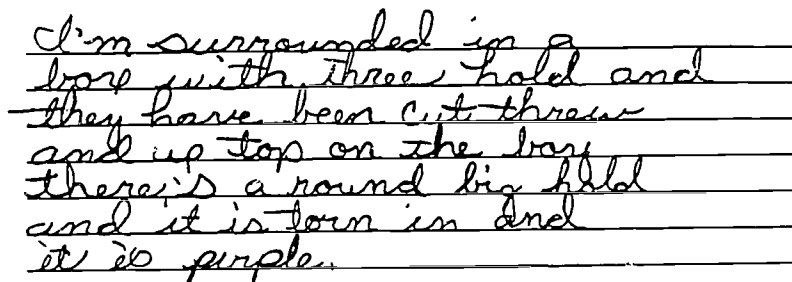 I'm surrounded in a
box with three hold and
they have been cut threw
and up top on the box
there's a round big hold
and it is torn in and
it is purple.